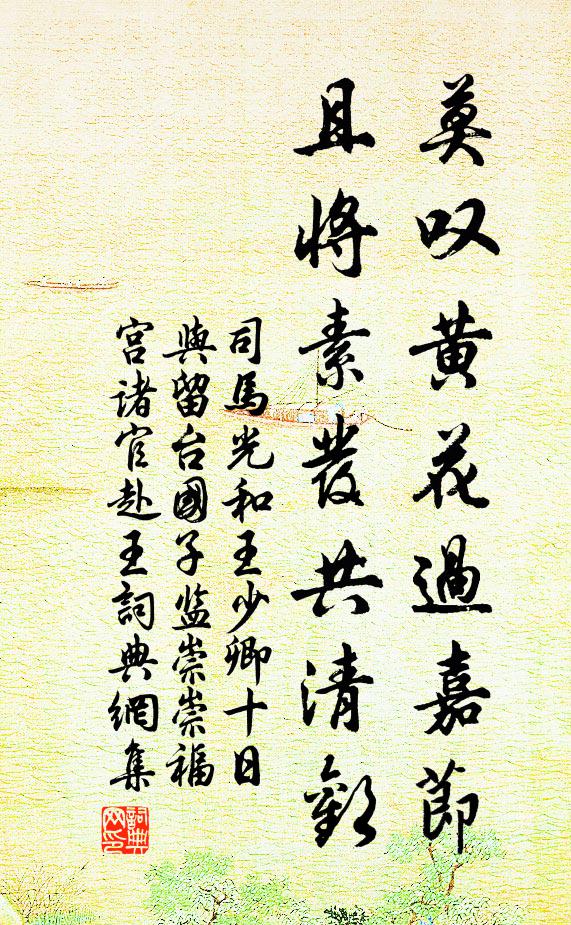 莫叹黄花過嘉節
且将素發共清歡
司馬光和王少卿十日
與留台國子监崇崇福
宫诸官赴王詞典網集
詞典網印